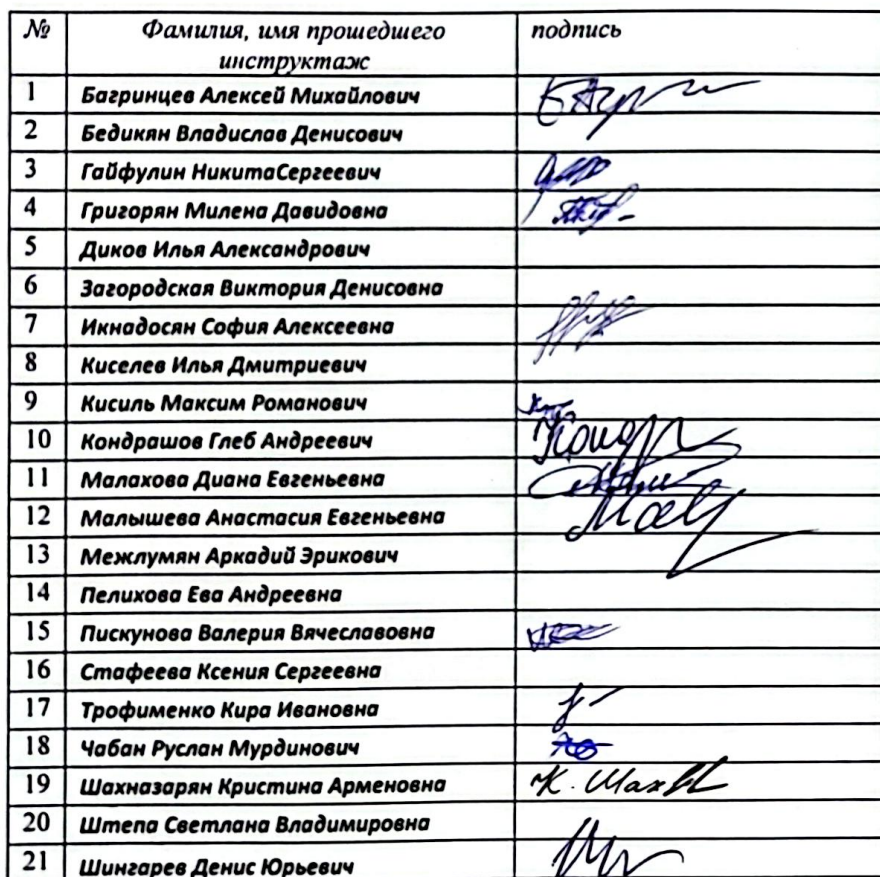 № Фамилия, имя прошедшего подпись
инструктаж
1 Багринцев Алексей Михайлович
2 Бедикян Владислав Денисович
3 Гайфулин НикитаСергеевич
4 Григорян Милена Давидовна
5 Диков Илья Александрович
6 Загородская Виктория Денисовна
7 Икнадосян София Алексеевна
8 Киселев Илья Дмитриевич
9 Кисиль Максим Романович
10 Кондрашов Глеб Андреевич
11 Малахова Диана Евгеньевна
12 Малышева Анастасия Евгеньевна
13 Межлумян Аркадий Эрикович
14 Пелихова Ева Андреевна
15 Пискунова Валерия Вячеславовна
16 Стафеева Ксения Сергеевна
17 Трофименко Кира Ивановна
18 Чабан Руслан Мурдинович
19 Шахназарян Кристина Арменовна
20 Штепа Светлана Владимировна
21 Шингарев Денис Юрьевич